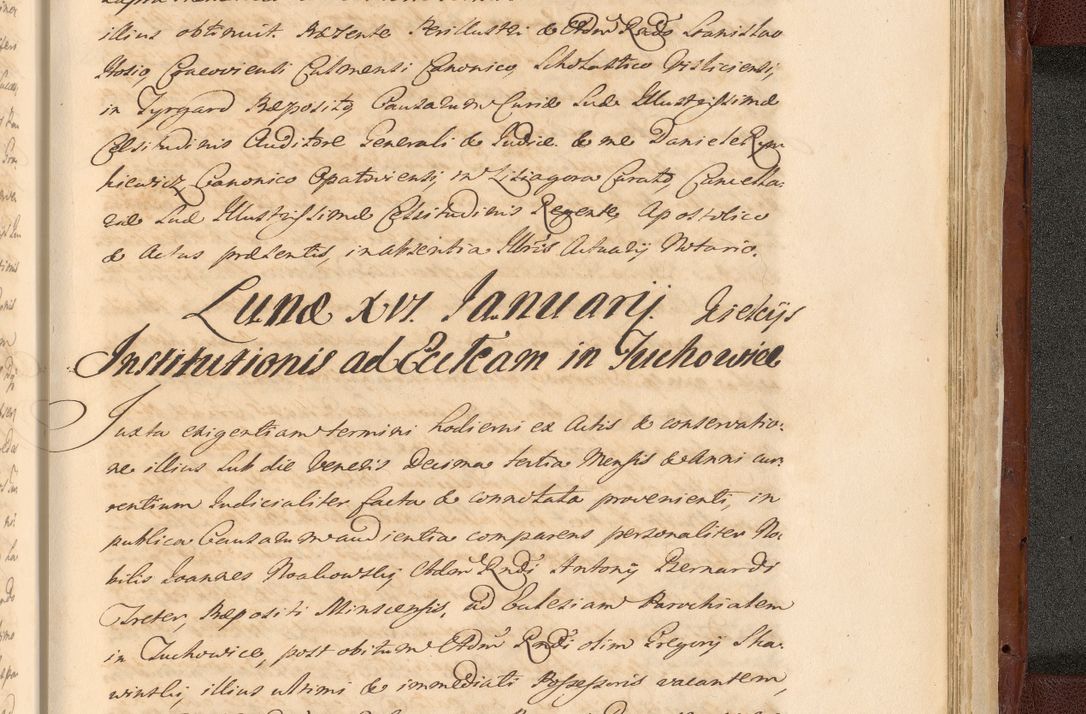 illius obtinuit Præsente Perillustri & Adm Rndo Stanislao
Hosio, Cracoviensi Culmensi Canonico, Scholastico Visliciensi,
in Tyrgard Præposito, Causarum Curiæ Suæ Illustrissimæ
Celsitudinis Auditore Generali & Judice. & me Daniele Rym
kiewicz, Canonico Opatoviensi, in Lisiagora Curato, Cancella:
riæ Suæ Illustrissimæ Celsitudinis Regente, Apostolico
& Actus præsentis, in absentia Actuarij Notario.
Lunæ XVI. Januarij.
Institutionis ad Ecclam in Tuchowice
Juxta exigentiam termini hodierni ex Actis & conservatio:
ne illius sub die Veneris Decima tertia Mensis & Anni cur
rentium Judicialiter facta & connotata provenienti, in
publica Causarum audientia comparens personaliter No:
bilis Joannes Noakowskij Adm Rndi Antonij Bernardi
Treter, Præpositi Minscensis, ad Ecclesiam Parochialem
in Tuchowice, post obitum Adm Rndi olim Gregorij Ska:
winskij, illius ultimi & immediati Possessoris vacantem,